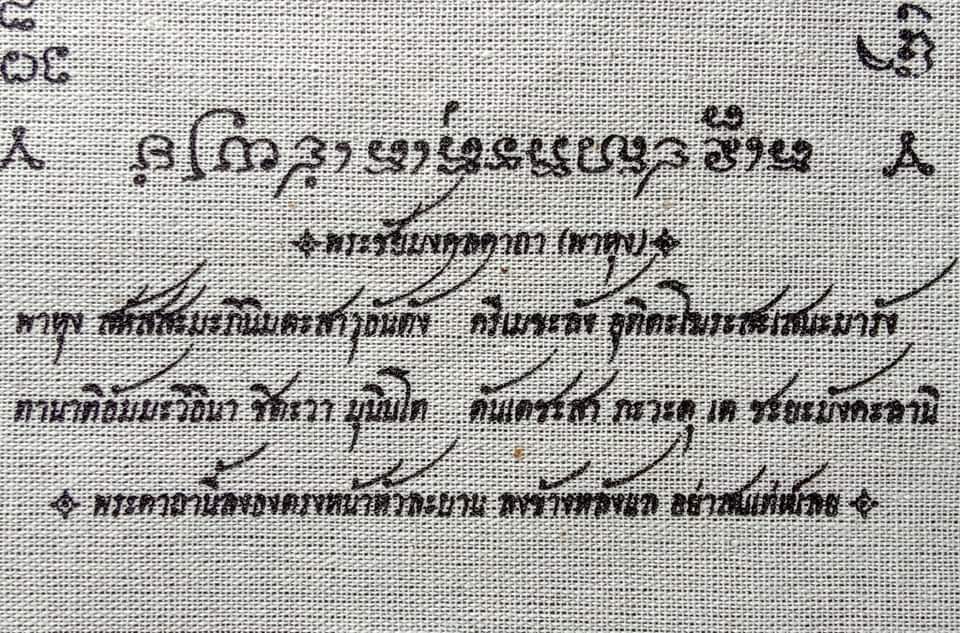 พระชัยมงคลคาถา (พาหุง)
พาหุง สหัสสะมะภินิมตะสาวุธันตัง ครีเมขะลัง อุทิตะโฆระสะเสนะมารัง
ทานาทิธัมมะวิธินา ชิตะวา มุนินโท ตันเตชะสา ภะวะตุ เต ชะยะมังคะลานิ
พระคาถานี้ลงธงตรงหน้าตัวละบาน ลงข้างหลังแล อย่าสนเท่ห์เลย